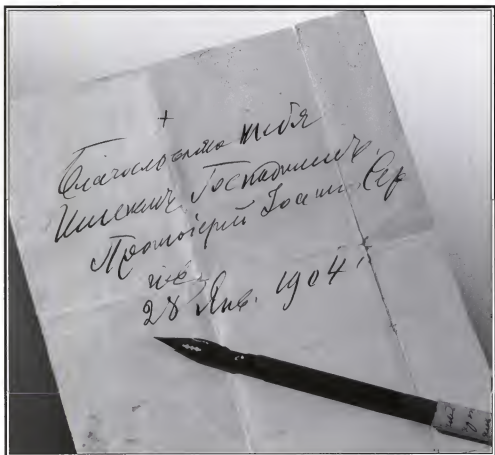 +
Благословляю тебя
Именемъ Господнимъ.
Протоіерей Іоаннъ Сер
28 Янв. 1904